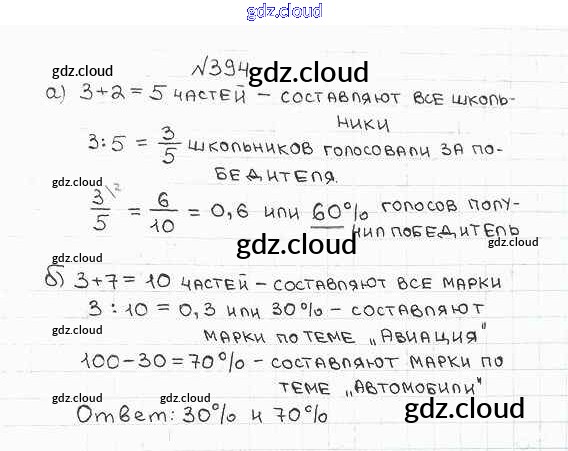 gdz.cloud
№394
gdz.cloud gdz.cloud
а) 3+2=5 частей – составляют все школь-
ники
3:5 = 3/5 школьников голосовали за по-
бедителя.
gdz.cloud gdz.cloud
3/5 \2 = 6/10 = 0,6 или 60% голосов полу-
чил победитель
gdz.cloud gdz.cloud
б) 3+7=10 частей – составляют все марки
3:10=0,3 или 30% – составляют
gdz.cloud gdz.cloud
марки по теме „Авиация"
100-30=70% – составляют марки по
gdz.cloud
теме „Автомобили"
gdz.cloud gdz.cloud
Ответ: 30% и 70%
gdz.cloud